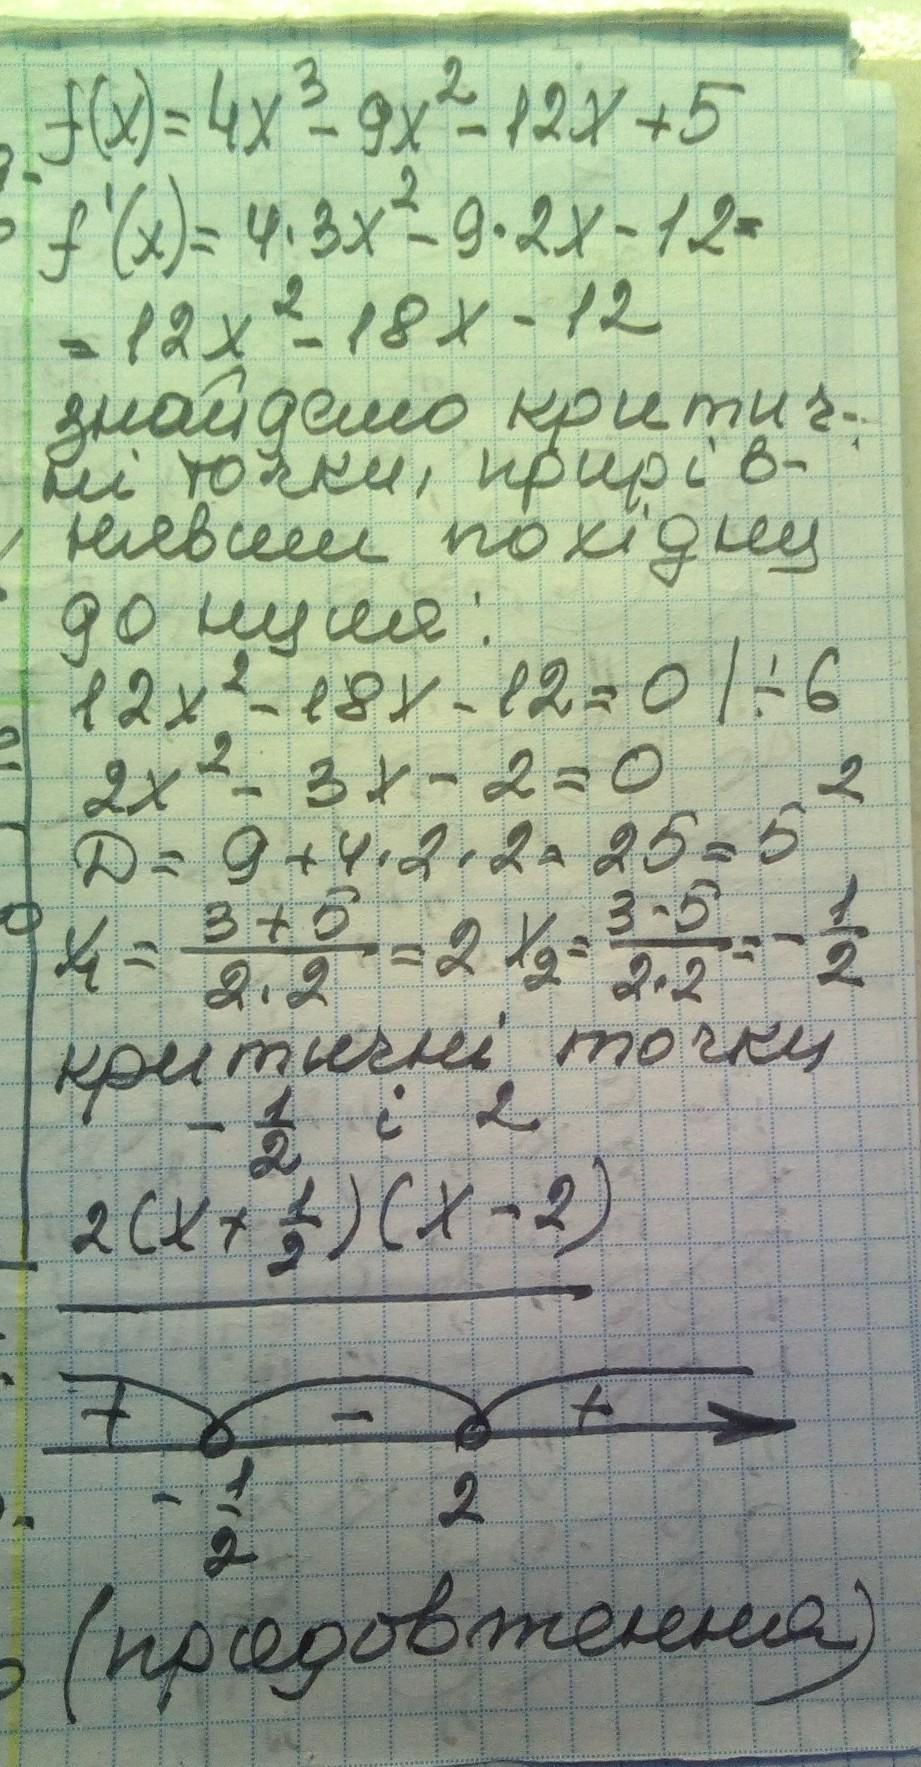 f(x) = 4x³ - 9x² - 12x + 5
f'(x) = 4·3x² - 9·2x - 12 =
= 12x² - 18x - 12
знайдемо критич-
ні точки, прирів-
нявши похідну
до нуля:
12x² - 18x - 12 = 0 | ÷ 6
2x² - 3x - 2 = 0
D = 9 + 4·2·2 = 25 = 5²
x₁ = (3+5)/(2·2) = 2 x₂ = (3-5)/(2·2) = -1/2
критичні точки
-1/2 і 2
2(x + 1/2)(x - 2)
+ - +
-1/2 2
(продовження)